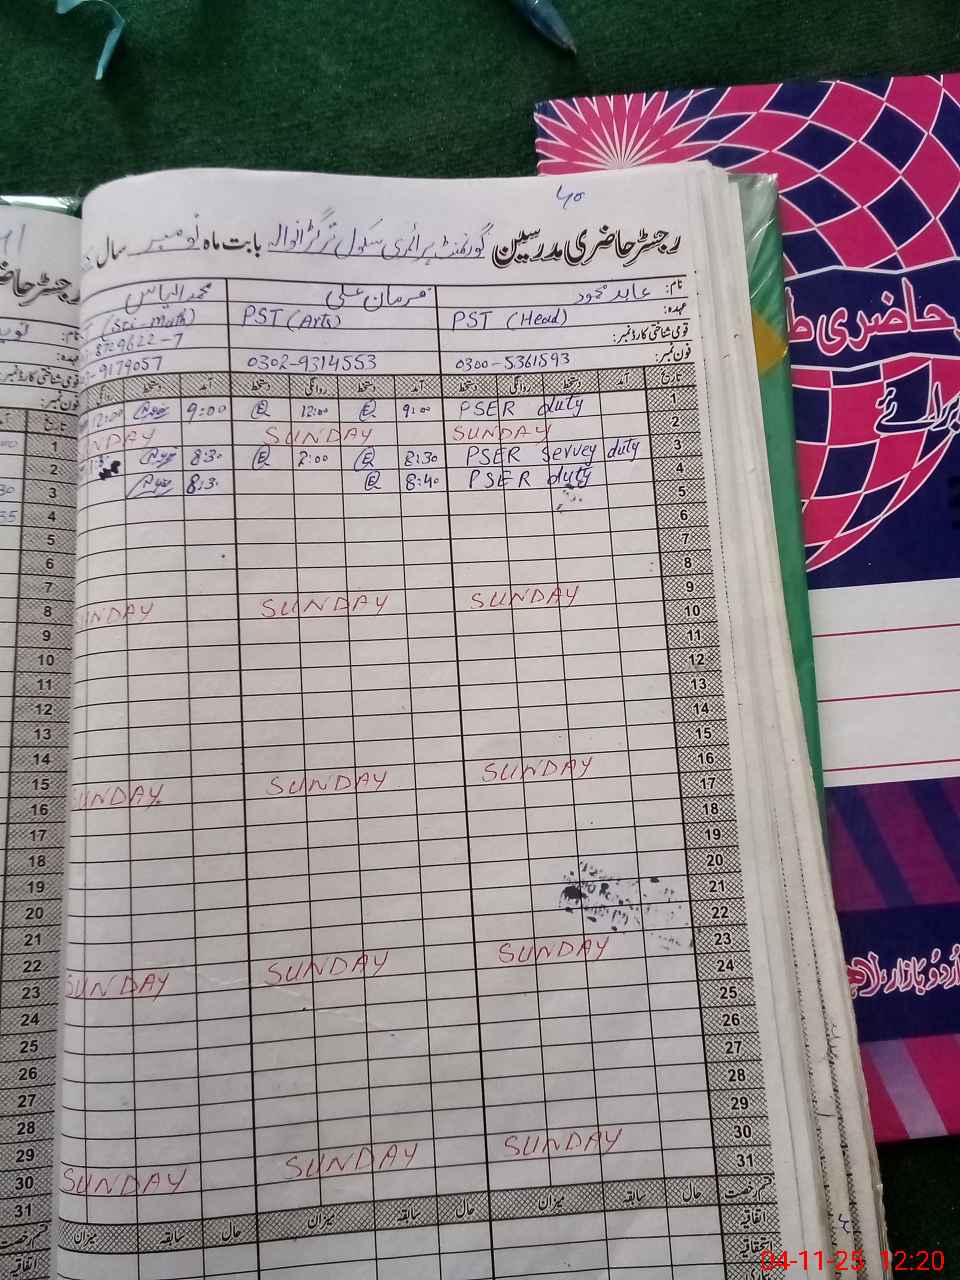 40
رجسٹر حاضری مدرسین گورنمنٹ پرائمری سکول ترگڑانوالہ بابت ماہ نومبر سال
نام: عابد محمود فرمان علی محمد الیاس
عہدہ: PST (Head) PST (Arts) (Sci-Math)
قومی شناختی کارڈ نمبر: 8729622-7
فون نمبر: 0300-5361593 0302-9314553 9179057
تاریخ آمد دستخط روانگی دستخط آمد دستخط روانگی دستخط آمد دستخط
1 PSER duty 9:00 12:00 9:00 12:00
2 SUNDAY SUNDAY SUNDAY
3 PSER servey duty 8:30 2:00 8:30
4 PSER duty 8:40 8:3
5
6
7
8
9 SUNDAY SUNDAY SUNDAY
10
11
12
13
14
15
16 SUNDAY SUNDAY SUNDAY
17
18
19
20
21
22
23 SUNDAY SUNDAY SUNDAY
24
25
26
27
28
29
30 SUNDAY SUNDAY SUNDAY
31
قسم رخصت حال سابقہ میزان حال سابقہ میزان حال سابقہ میزان
اتفاقیہ
استحقاقیہ
رجسٹر حاضری
نام:
عہدہ:
قومی شناختی کارڈ نمبر:
فون نمبر:
تاریخ
1
2
3
4
5
6
7
8
9
10
11
12
13
14
15
16
17
18
19
20
21
22
23
24
25
26
27
28
29
30
31
قسم رخصت
اتفاقیہ
حاضری
برائے
اردو بازار، لاہور
04-11-25 12:20